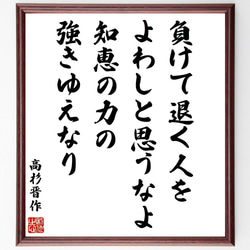 負けて退く人を
よわしと思うなよ
知恵の力の
強きゆえなり
高杉晋作